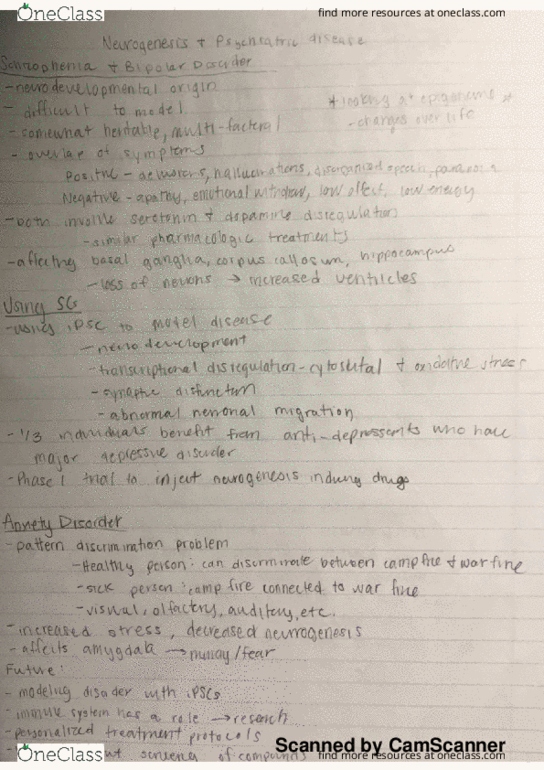 OneClass
find more resources at oneclass.com
Neurogenesis + Psychiatric disease
Schizophrenia + Bipolar Disorder
- neurodevelopmental origin
- difficult to model
* looking at epigenome *
- somewhat heritable, multi-factoral
- changes over life
- overlap of symptoms
Positive - delusions, hallucinations, disorganized speech, paranoia
Negative - apathy, emotional withdraw, low affect, low energy
- both involve serotonin + dopamine disregulation
- similar pharmacologic treatments
- affecting basal ganglia, corpus callosum, hippocampus
- loss of neurons → increased ventricles
Using SG
- using iPSC to model disease
- neuro development
- transcriptional disregulation - + oxidative stress
- synaptic disfunction
- abnormal neuronal migration
- 1/3 individuals benefit from anti-depressents who have
major depressive disorder
- Phase 1 trial to inject neurogenesis indung drugs
Anxiety Disorder
- pattern discrimination problem
- Healthy person: can discriminate between camp fire + war fire
- sick person: camp fire connected to war fire
- visual, olfactory, auditory, etc.
- increased stress, decreased neurogenesis
- affects amygdala → /fear
Future:
- modeling disorder with iPSCs
- immune system has a role → research
- personalized treatment protocols
screning of compounds
Scanned by CamScanner
OneClass
find more resources at oneclass.com